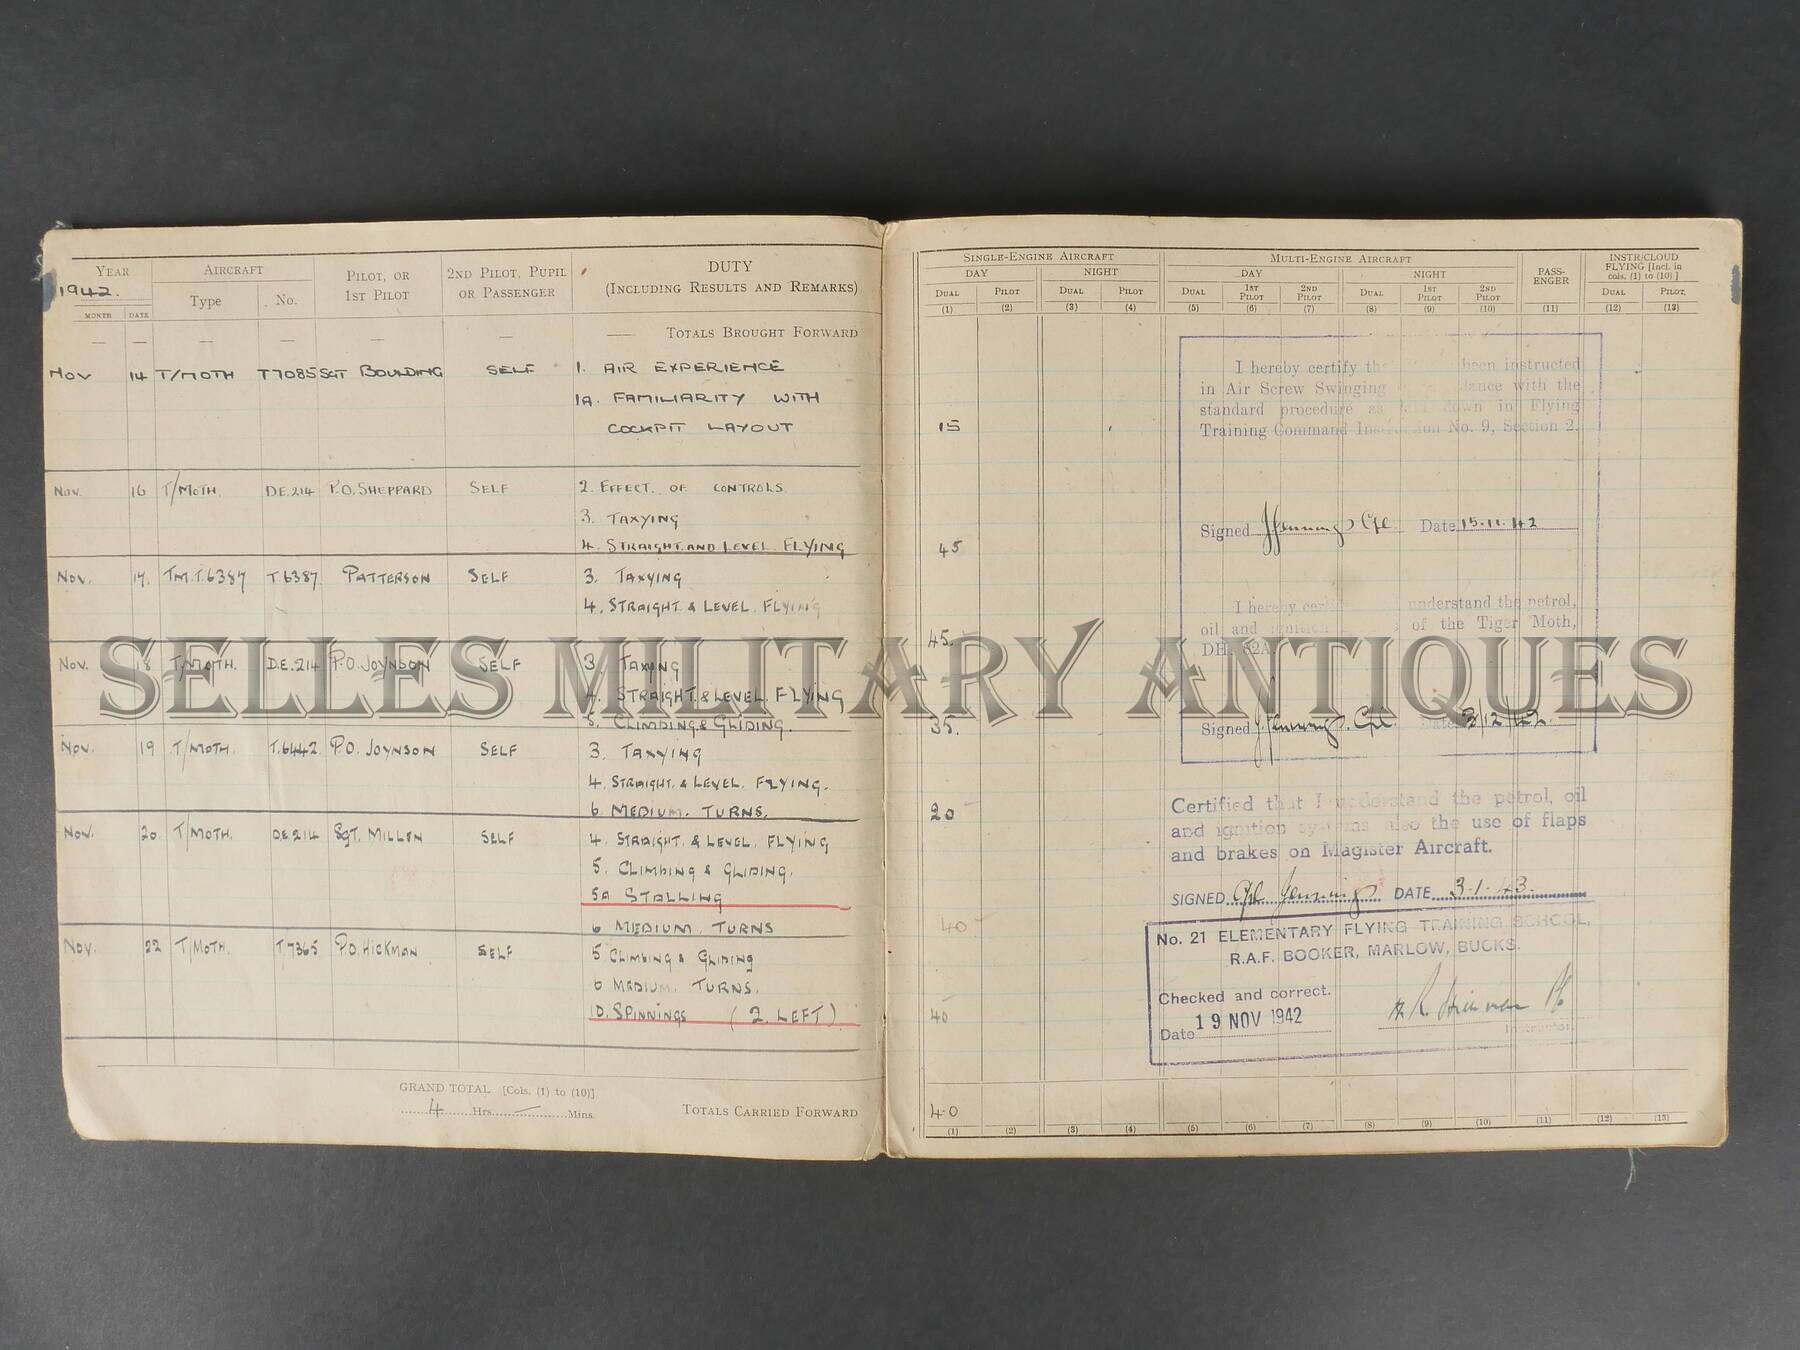 YEAR AIRCRAFT PILOT, OR 2ND PILOT, PUPIL DUTY
1942. Type No. 1ST PILOT OR PASSENGER (INCLUDING RESULTS AND REMARKS)
MONTH DATE
— — — — — — — TOTALS BROUGHT FORWARD
NOV 14 T/MOTH T7085 SGT BOULDING SELF 1. AIR EXPERIENCE
1A. FAMILIARITY WITH
COCKPIT LAYOUT
NOV. 16 T/MOTH. DE.214 P.O. SHEPPARD SELF 2. EFFECT. OF CONTROLS
3. TAXYING
4. STRAIGHT. AND LEVEL. FLYING
NOV. 17. TM.T.6387 T.6387 PATTERSON SELF 3. TAXYING
4. STRAIGHT. & LEVEL. FLYING
NOV. 18 T/MOTH. D.E.214 P.O. JOYNSON SELF 3. TAXYING
4. STRAIGHT. & LEVEL. FLYING
CLIMBING & GLIDING.
NOV. 19 T/MOTH. T.6442 P.O. JOYNSON SELF 3. TAXYING
4. STRAIGHT. & LEVEL. FLYING.
6. MEDIUM. TURNS.
NOV. 20. T/MOTH. DE.214 SGT. MILLEN SELF 4. STRAIGHT. & LEVEL. FLYING
5. CLIMBING & GLIDING.
5A STALLING
6 MEDIUM. TURNS
NOV. 22 T/MOTH. T7365 P.O. HICKMAN SELF 5 CLIMBING & GLIDING
6 MEDIUM. TURNS.
10. SPINNINGS (2. LEFT)
GRAND TOTAL [Cols. (1) to (10)]
4 Hrs — Mins. TOTALS CARRIED FORWARD
SINGLE-ENGINE AIRCRAFT MULTI-ENGINE AIRCRAFT PASS-ENGER INSTR/CLOUD FLYING [Incl. in cols. (1) to (10)]
DAY NIGHT DAY NIGHT
DUAL PILOT DUAL PILOT DUAL 1ST PILOT 2ND PILOT DUAL 1ST PILOT 2ND PILOT DUAL PILOT.
(1) (2) (3) (4) (5) (6) (7) (8) (9) (10) (11) (12) (13)
15
45
45.
35.
20
40
40
40
I hereby certify been instructed
in Air Screw Swinging with the
standard procedure as down in Flying
Training Command No. 9, Section 2.
Signed J. Jennings Cpl. Date 15.11.42
I hereby understand the petrol,
oil and ignition of the Tiger Moth,
DH. 82A
Signed J. Jennings. Cpl. Date /12/42.
Certified that I understand the petrol, oil
and ignition systems also the use of flaps
and brakes on Magister Aircraft.
SIGNED Cpl Jennings DATE 3.1.43.
No. 21 ELEMENTARY FLYING TRAINING SCHOOL,
R.A.F. BOOKER, MARLOW, BUCKS.
Checked and correct.
Date 19 NOV 1942
Instructor.
(1) (2) (3) (4) (5) (6) (7) (8) (9) (10) (11) (12) (13)
SELLES MILITARY ANTIQUES